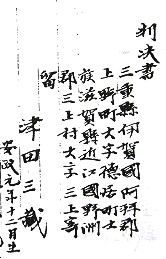 判决書
三重縣伊賀國阿拜郡
上野町大字徳居町士
族滋賀縣近江國野洲
郡三上村大字三上寄
留
津田三藏
安政元年十二月生